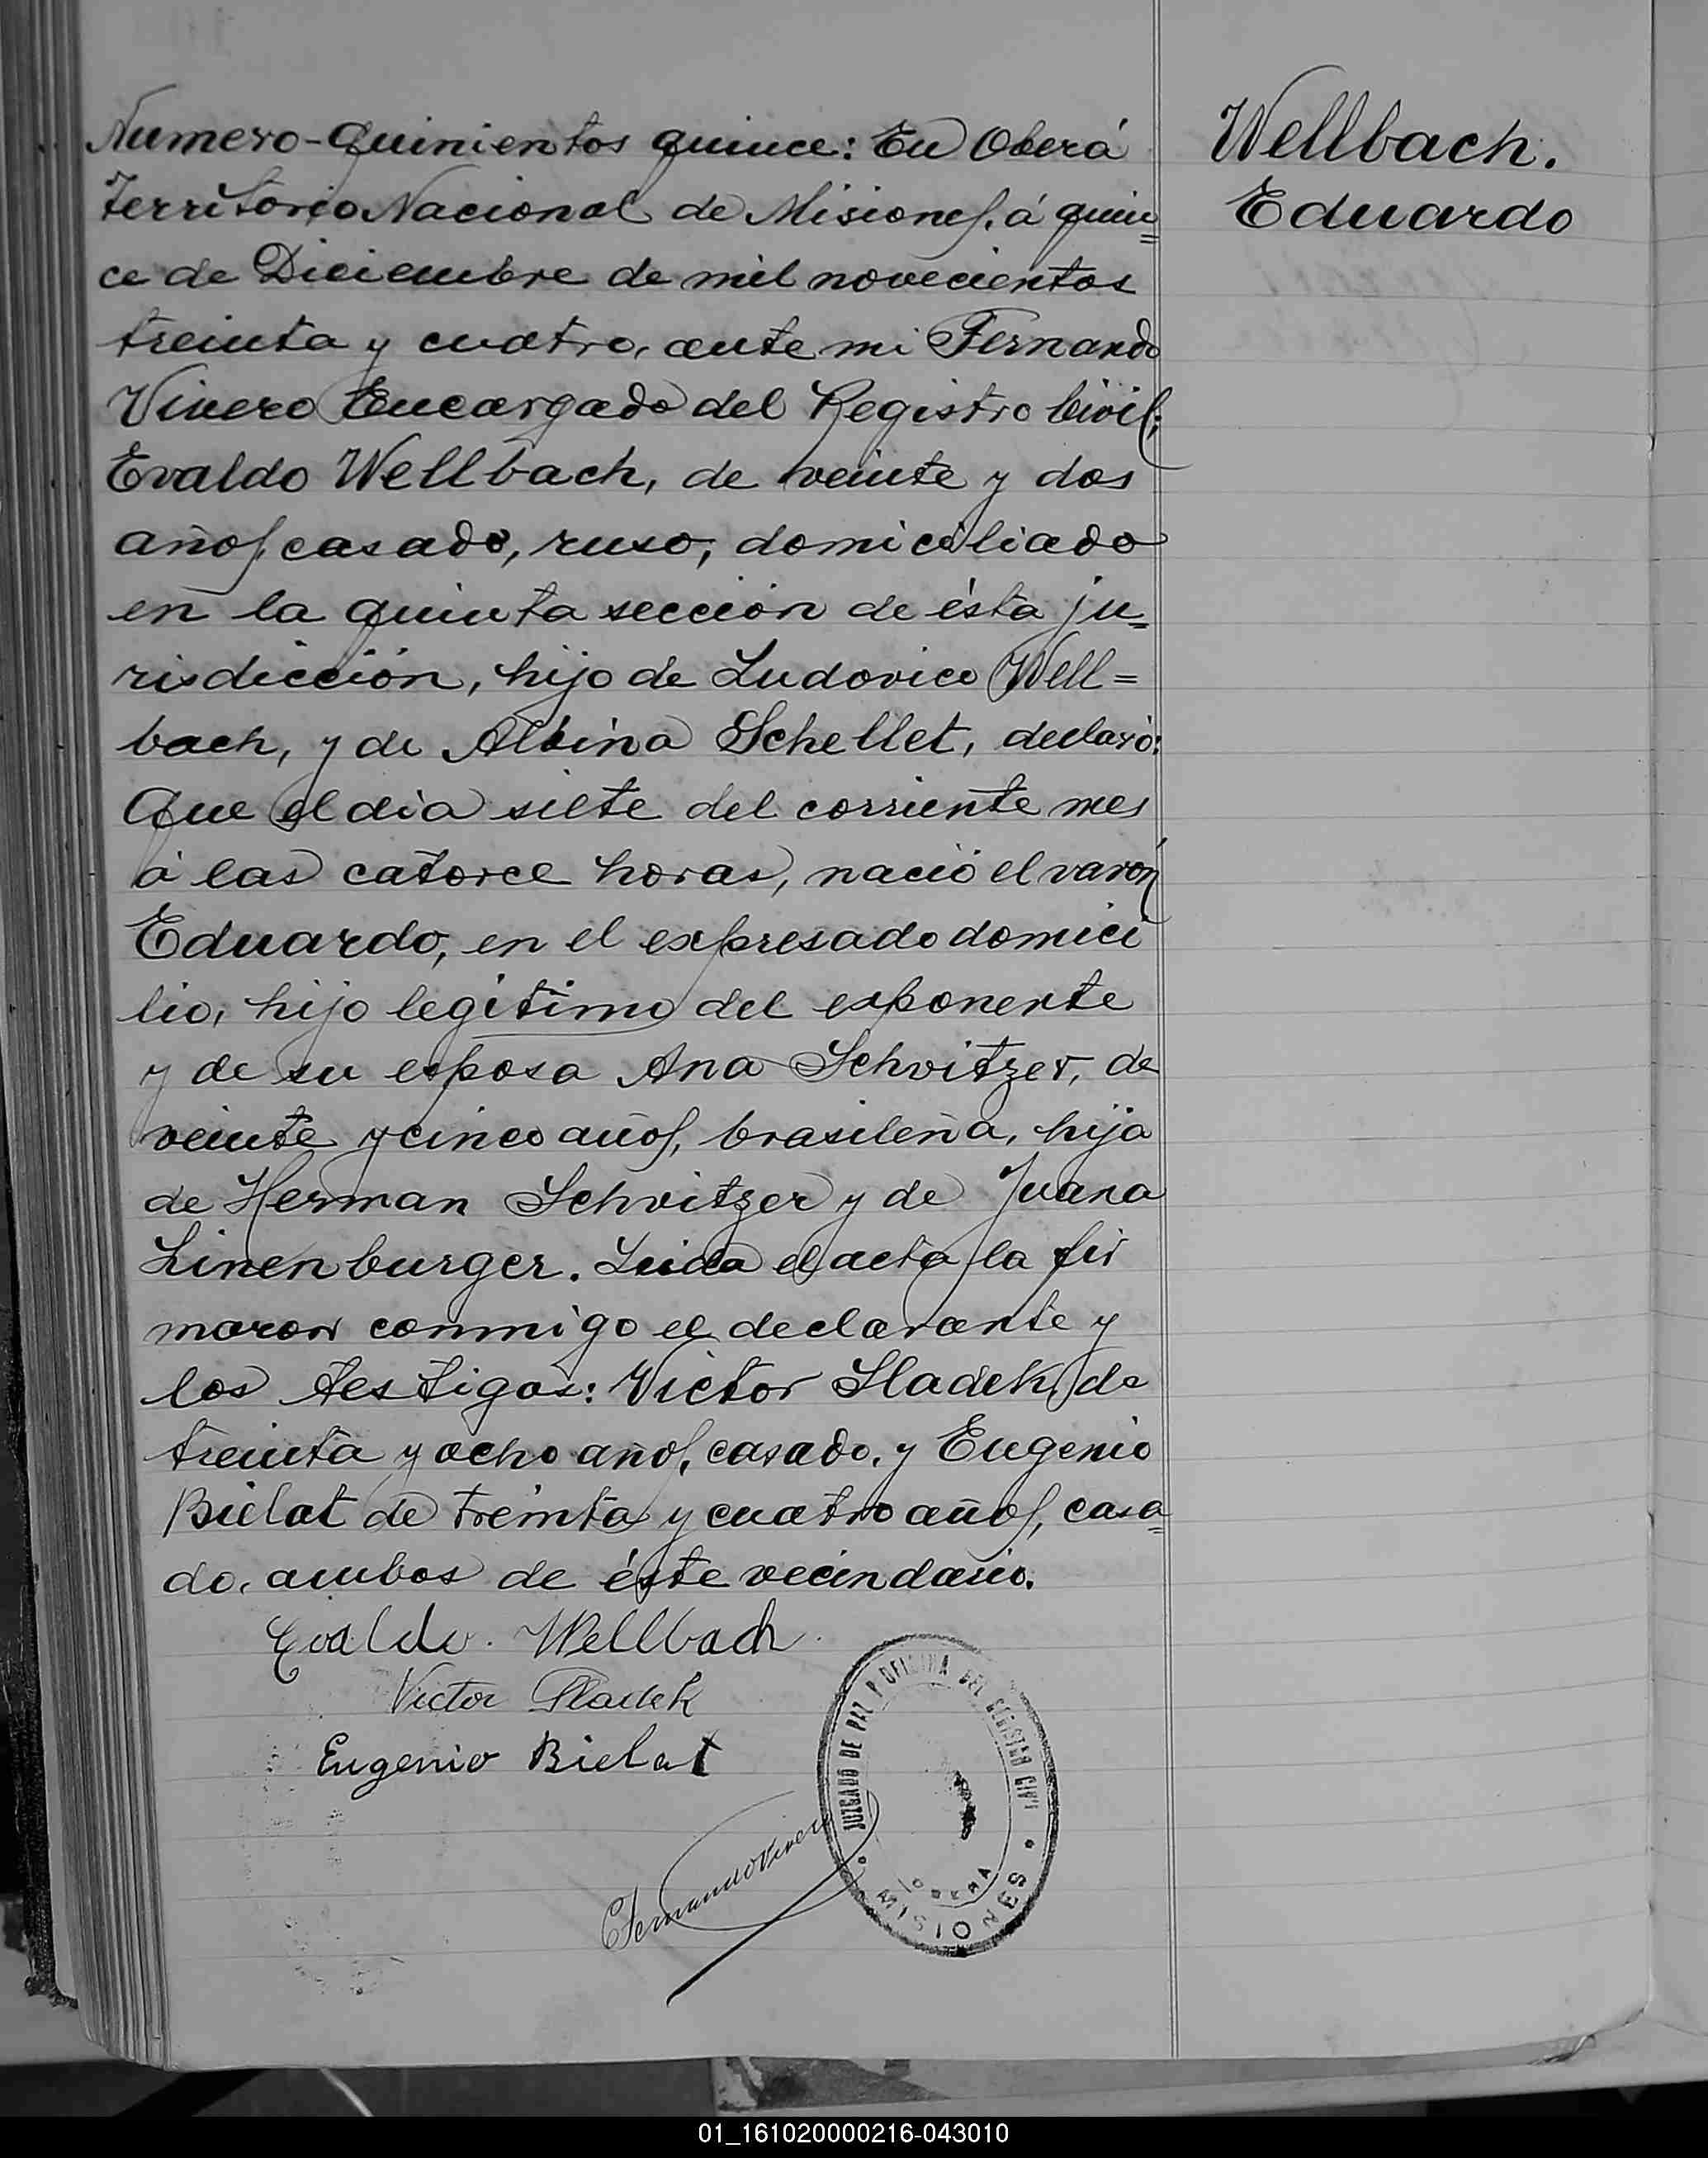 Numero-Quinientos quince: En Oberá
Territorio Nacional de Misiones, á quin=
ce de Diciembre de mil novecientos
treinta y cuatro, ante mi Fernando
Vivero Encargado del Registro Civil;
Evaldo Wellbach, de veinte y dos
años, casado, ruso, domiciliado
en la quinta sección de ésta ju=
risdicción, hijo de Ludovico Well=
bach, y de Albina Schellet, declaró:
Que el dia siete del corriente mes
á las catorce horas, nació el varón
Eduardo, en el expresado domici
lio, hijo legitimo del exponente
y de su esposa Ana Schvitzer, de
veinte y cinco años, brasileña, hija
de Herman Schvitzer y de Juana
Linenburger. Leida el acta la fir
maron conmigo el declarante y
los testigos: Victor Sladek, de
treinta y ocho años, casado, y Eugenio
Bielat de treinta y cuatro años, casa=
do, ambos de éste vecindario.
Evaldo. Wellbach.
Victor Sladek
Eugenio Bielat
Fernando Vivero
JUZGADO DE PAZ Y OFICINA DEL REGISTRO CIVIL
OBERA
MISIONES
Wellbach.
Eduardo
01_161020000216-043010